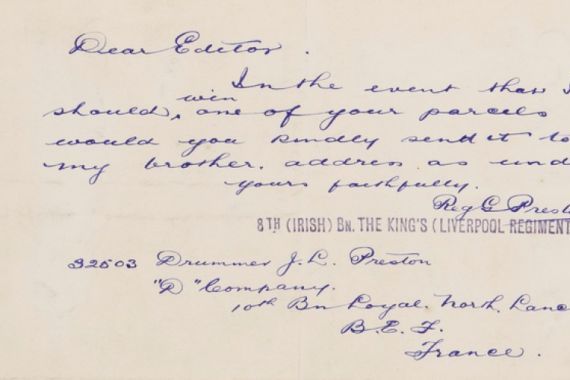 Dear Editor.
In the event that I
should, win one of your parcels
would you kindly send it to
my brother. address as und
yours faithfully.
Reg G Prest
8TH (IRISH) BN. THE KING'S (LIVERPOOL REGIMENT
32503 Drummer J. L. Preston
"D" Company.
10th Bn Loyal. North. Lanc
B. E. F.
France.